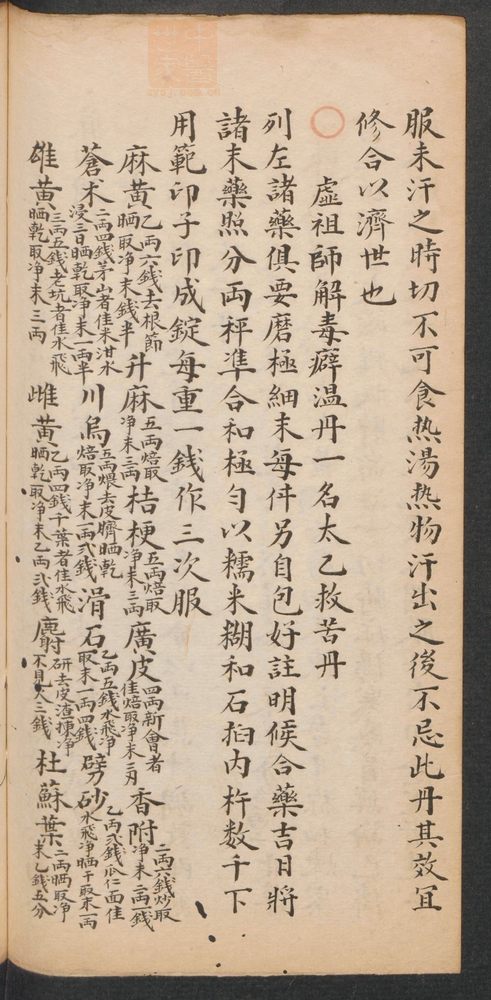 服未汗之時切不可食热湯热物汗出之後不忌此丹其效冝
修合以濟世也
○虛祖師解毒癖温丹一名太乙救苦丹
列左諸藥俱要磨極細末每件另自包好註明候合藥吉日將
諸末藥照分両秤準合和極勻以糯米糊和石臼内杵数千下
用範印子印成錠每重一錢作三次服
麻黄乙両六錢去根節晒取净末錢半 升麻五両焙取净末三両 桔梗五両焙取净末三両 廣皮四両新會者佳焙取净末三両 香附二両六錢炒取净末二両一錢
蒼术二両四錢茅山者佳米泔水浸三日晒乾取净末一両半 川烏五両煨去皮臍晒乾焙取净末一両弍錢 滑石乙両五錢水飛净取末一両四錢 劈砂乙両弍錢瓜仁面佳水飛净晒干取末一両
雄黄三両五錢老坑者佳水飛晒乾取净末三両 雌黄乙両四錢千葉者佳水飛晒乾取净末乙両弍錢 麝研去皮渣揀净不見火三錢 杜蘇葉二両晒取净末乙錢五分